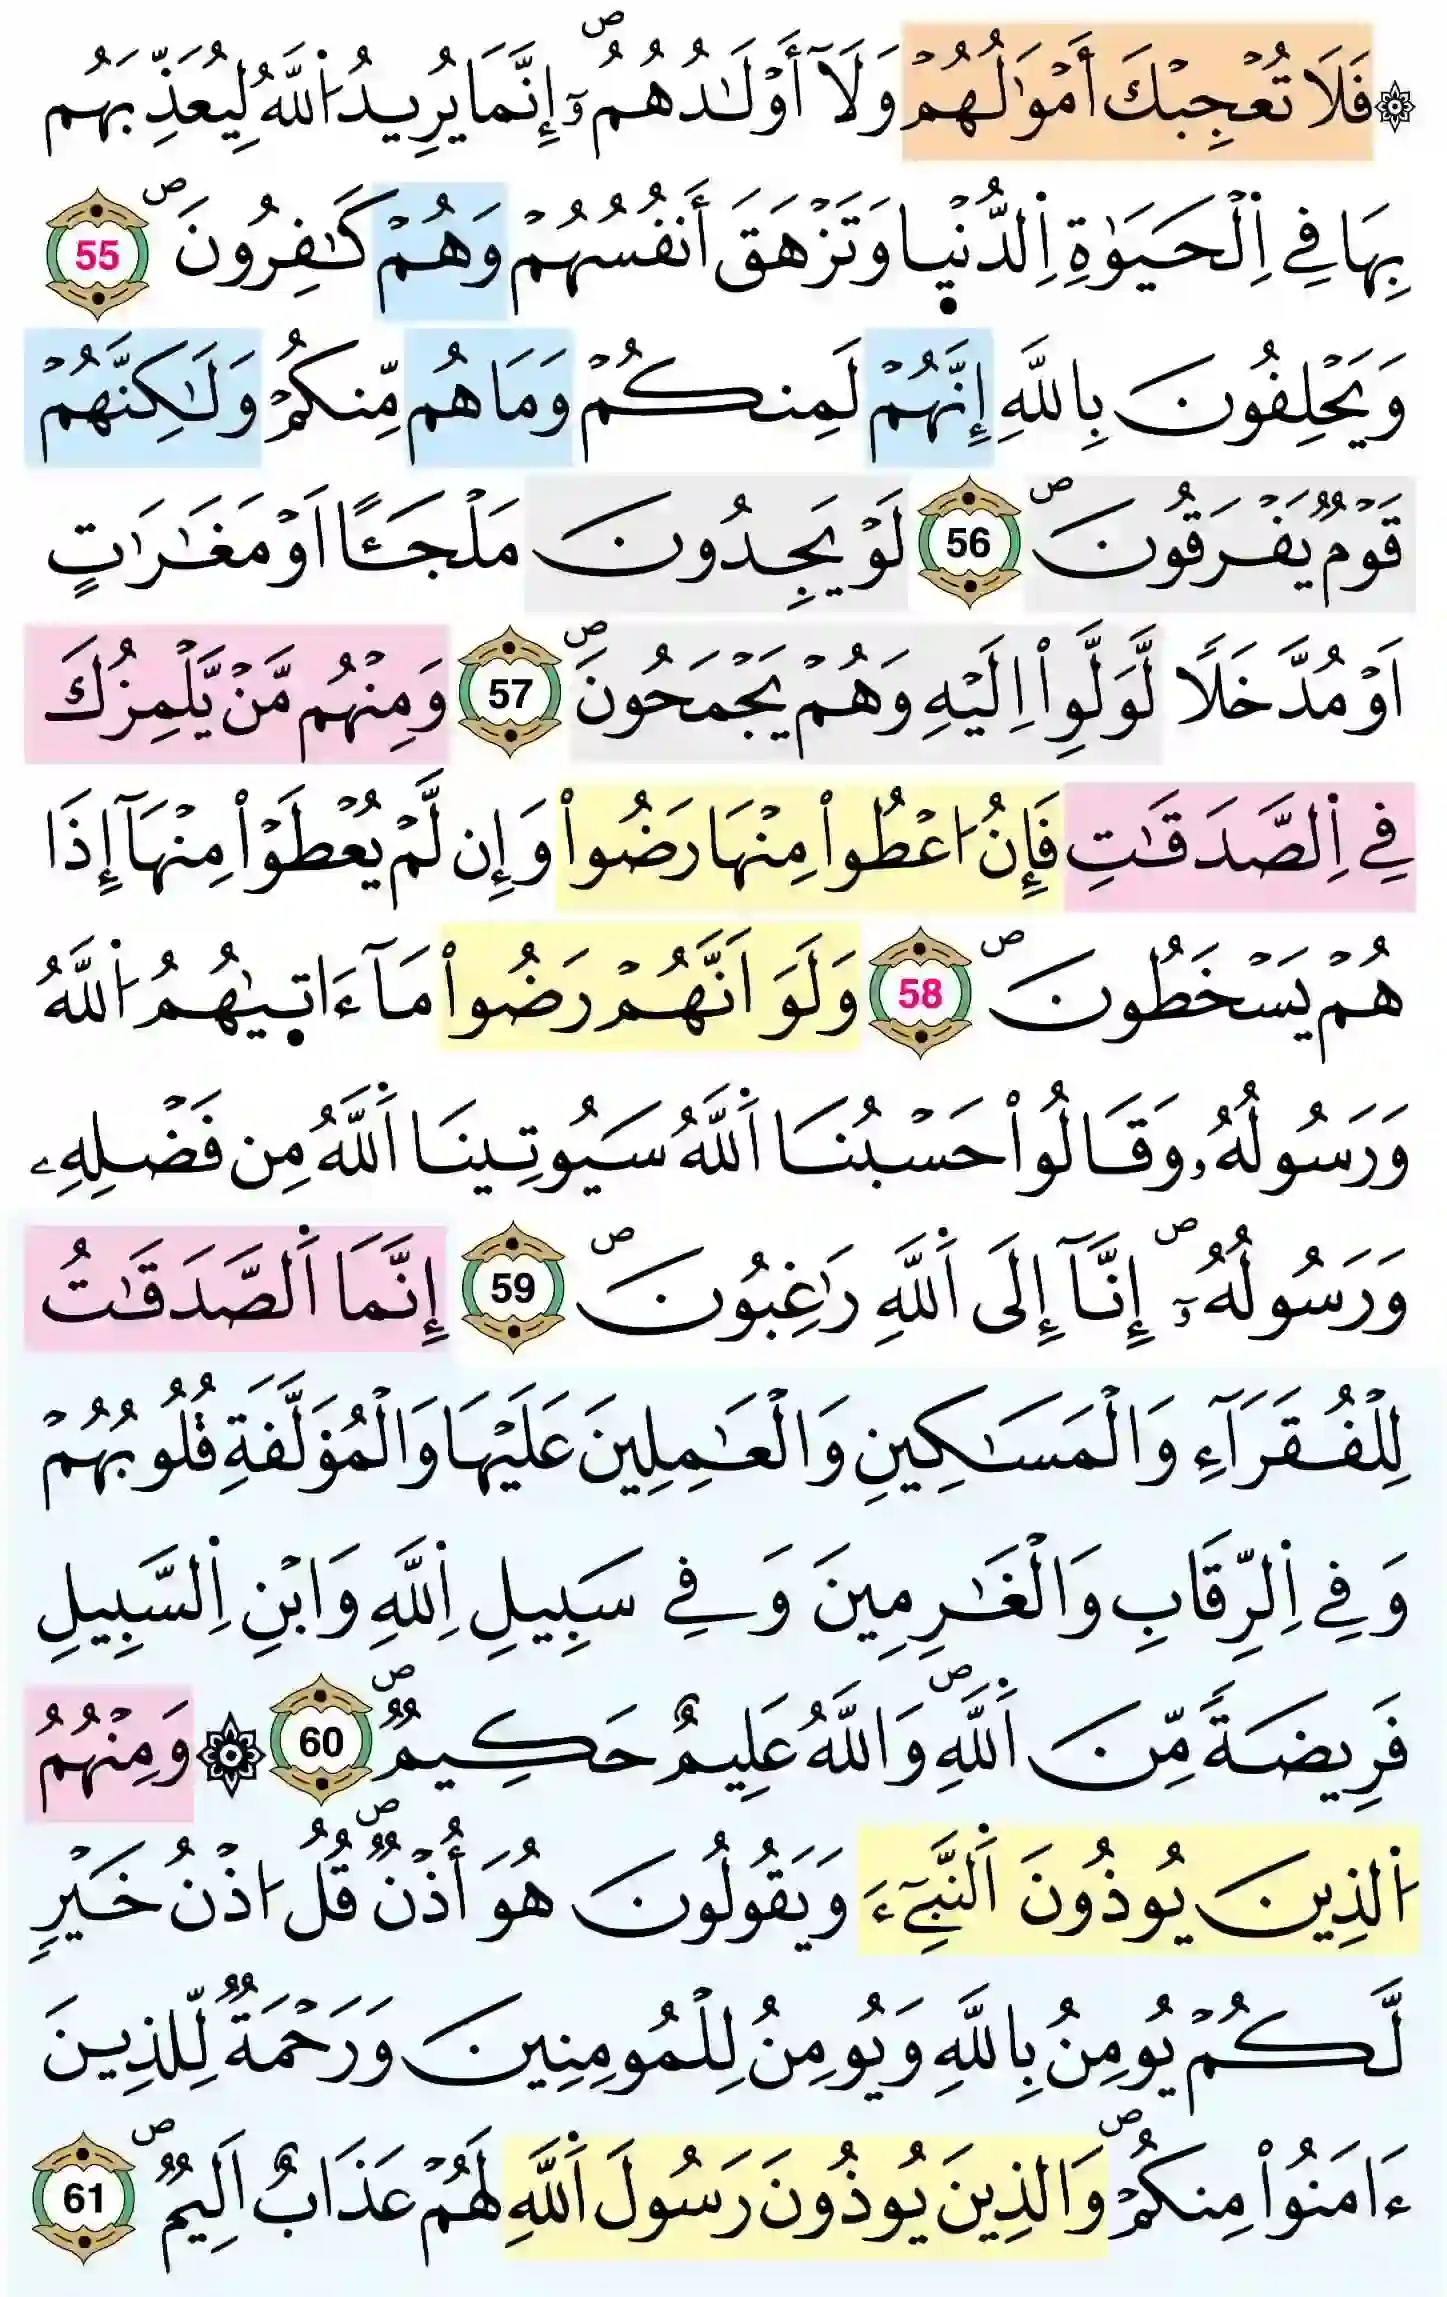 ۞ فَلَا تُعْجِبْكَ أَمْوَٰلُهُمْ وَلَآ أَوْلَٰدُهُمُۥٓۖ إِنَّمَا يُرِيدُ اُ۬للَّهُ لِيُعَذِّبَهُم
بِهَا فِے اِ۬لْحَيَوٰةِ اِ۬لدُّنْي۪ا وَتَزْهَقَ أَنفُسُهُمْ وَهُمْ كَٰفِرُونَۖ 55
وَيَحْلِفُونَ بِاللَّهِ إِنَّهُمْ لَمِنكُمْ وَمَا هُم مِّنكُمْ وَلَٰكِنَّهُمْ
قَوْمٞ يَفْرَقُونَۖ 56 لَوْ يَجِدُونَ مَلْجَـًٔا اَوْ مَغَٰرَٰتٍ
اَوْ مُدَّخَلٗا لَّوَلَّوِاْ اِلَيْهِ وَهُمْ يَجْمَحُونَۖ 57 وَمِنْهُم مَّنْ يَّلْمِزُكَ
فِے اِ۬لصَّدَقَٰتِ فَإِنُ اُعْطُواْ مِنْهَا رَضُواْ وَإِن لَّمْ يُعْطَوْاْ مِنْهَآ إِذَا
هُمْ يَسْخَطُونَۖ 58 وَلَوَ اَنَّهُمْ رَضُواْ مَآ ءَات۪يٰهُمُ اُ۬للَّهُ
وَرَسُولُهُۥ وَقَالُواْ حَسْبُنَا اَ۬للَّهُ سَيُوتِينَا اَ۬للَّهُ مِن فَضْلِهِۦ
وَرَسُولُهُۥٓۖ إِنَّآ إِلَى اَ۬للَّهِ رَٰغِبُونَۖ 59 إِنَّمَا اَ۬لصَّدَقَٰتُ
لِلْفُقَرَآءِ وَالْمَسَٰكِينِ وَالْعَٰمِلِينَ عَلَيْهَا وَالْمُؤَلَّفَةِ قُلُوبُهُمْ
وَفِے اِ۬لرِّقَابِ وَالْغَٰرِمِينَ وَفِے سَبِيلِ اِ۬للَّهِ وَابْنِ اِ۬لسَّبِيلِ
فَرِيضَةٗ مِّنَ اَ۬للَّهِۖ وَاللَّهُ عَلِيمٌ حَكِيمٞۖ 60 ۞ وَمِنْهُمُ
اُ۬لذِينَ يُوذُونَ اَ۬لنَّبِےٓءَ وَيَقُولُونَ هُوَ أُذْنٞۖ قُلُ اذْنُ خَيْرٖ
لَّكُمْ يُومِنُ بِاللَّهِ وَيُومِنُ لِلْمُومِنِينَ وَرَحْمَةٞ لِّلذِينَ
ءَامَنُواْ مِنكُمْۖ وَالذِينَ يُوذُونَ رَسُولَ اَ۬للَّهِ لَهُمْ عَذَابٌ اَلِيمٞۖ 61